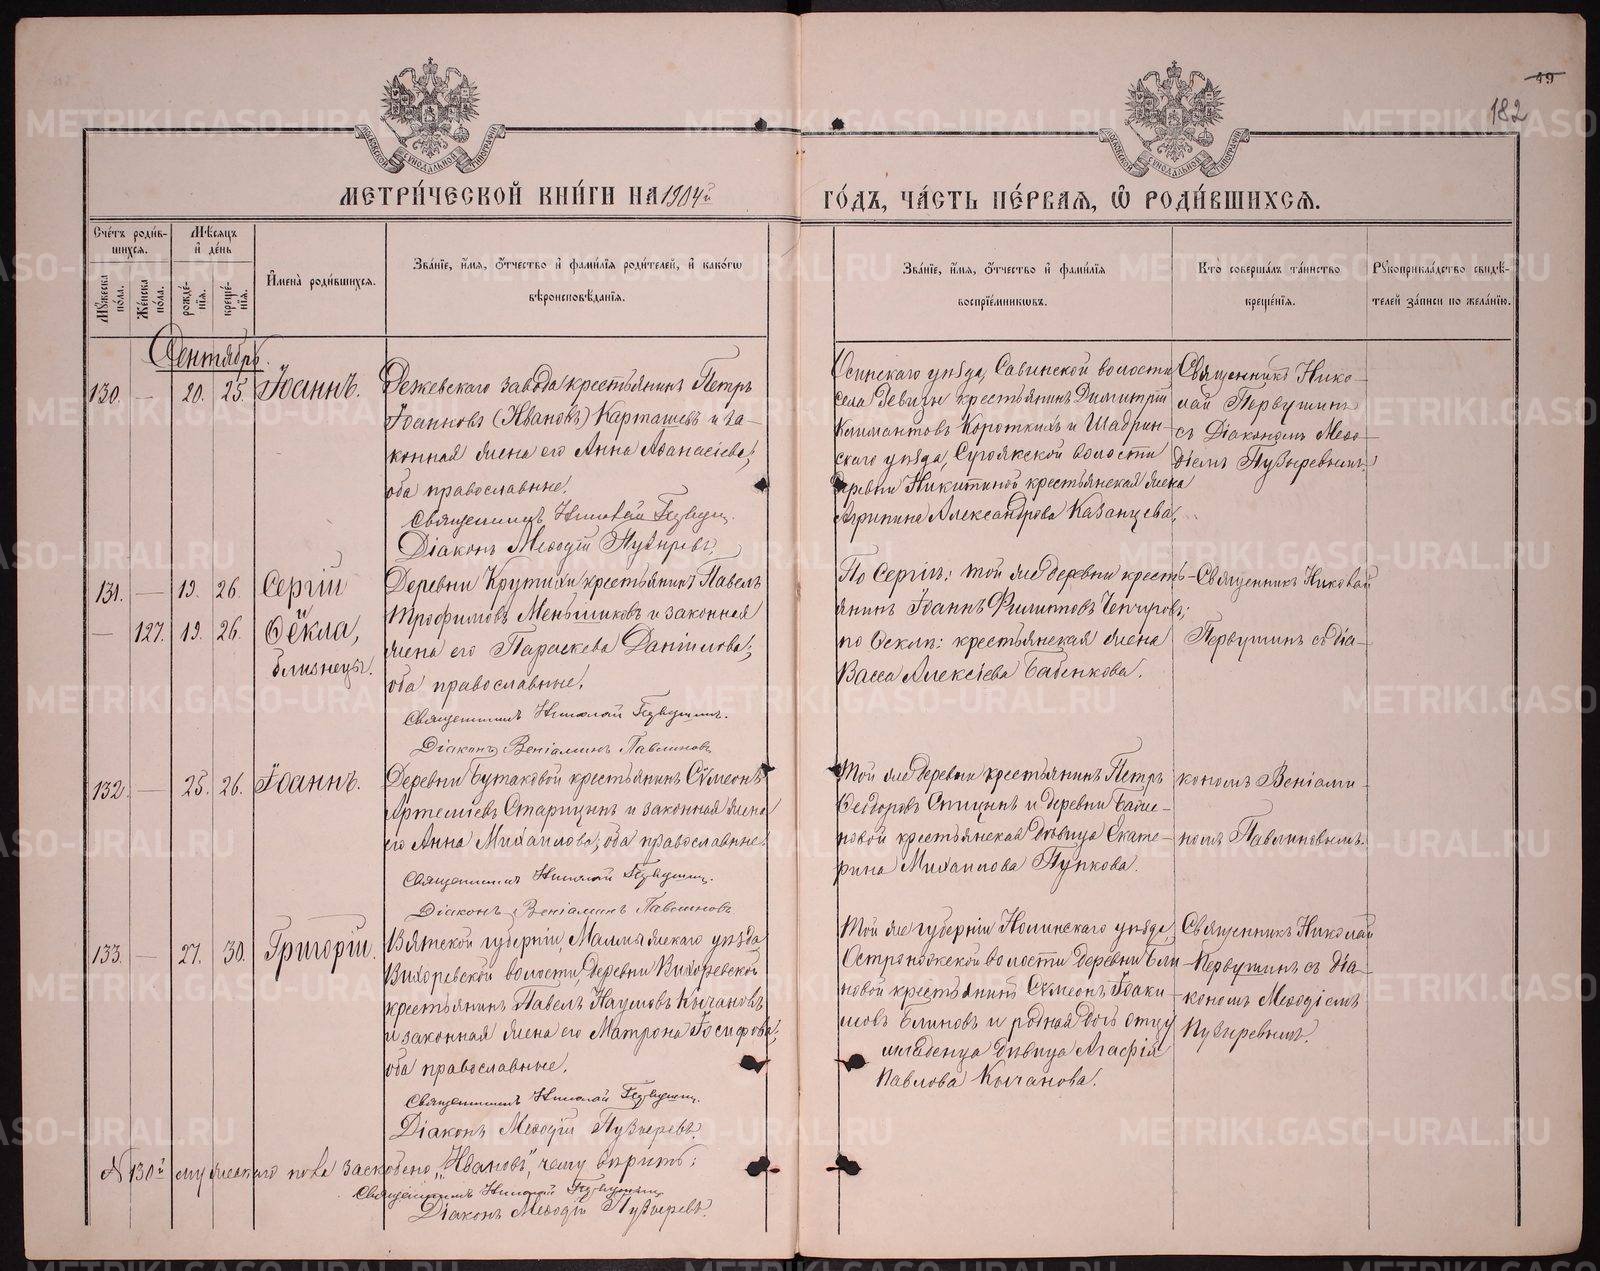 19
182
МЕТРИ́ЧЕСКОЙ КНИ́ГИ НА 1904й ГО́ДЪ, ЧА́СТЬ ПЕ́РВАЯ, Ѽ РОДИ́ВШИХСЯ.
Сче́тъ роди́вшихся.
Му́жеска по́ла.
Же́нска по́ла.
Мѣ́сяцъ и҆ де́нь
рожде́нїя.
креще́нїя.
И҆мена̀ роди́вшихся.
Зва́нїе, и҆́мя, ѻ҆́тчество и҆ фами́лїя роди́телей, и҆ како́гѡ
вѣроисповѣ́данїя.
Зва́нїе, и҆́мя, ѻ҆́тчество и҆ фами́лїя
воспрїе́мникωвъ.
Кто̀ соверша́лъ та́инство
креще́нїя.
Рꙋкоприкла́дство свидѣ́-
телей за́писи по жела́нїю.
Сентябрь.
130. — 20. 25. Іоаннъ.
Режевскаго завода крестьянинъ Петръ
Іоанновъ (Ивановъ) Карташевъ и за-
конная жена его Анна Аѳанасіева;
оба православные.
Священникъ Николай Первушин.
Діаконъ Меѳодій Пузыревъ.
Осинскаго уѣзда, Савинской волости
села Девизы крестьянинъ Димитрій
Климантовъ Короткихъ и Шадрин-
скаго уѣзда, Сугоякской волости
деревни Никитиной крестьянская жена
Агрипина Александрова Казанцева.
Священникъ Нико-
лай Первушинъ
съ Діакономъ Меѳо-
діемъ Пузыревымъ.
131. — 19. 26. Сергій
и
— 127. 19. 26. Ѳекла,
близнецы.
Деревни Крутихи крестьянинъ Павелъ
Трофимовъ Меньшиковъ и законная
жена его Параскева Даніилова;
оба православные.
Священникъ Николай Первушинъ.
Діаконъ Веніаминъ Павлиновъ
По Сергіѣ: той же деревни кресть-
янинъ Іоаннъ Филиповъ Чепчуговъ;
по Ѳеклѣ: крестьянская жена
Васса Алексіева Бабенкова.
Священникъ Николай
Первушинъ съ Діа-
132. — 25. 26. Іоаннъ.
Деревни Бутаковой крестьянинъ Сѵмеонъ
Артеміевъ Старицынъ и законная жена
его Анна Михаилова; оба православные.
Священникъ Николай Первушин.
Діаконъ Веніаминъ Павлиновъ
Той же деревни крестьянинъ Петръ
Ѳеодоровъ Спицынъ и деревни
новой крестьянская дѣвица Екате-
рина Михаилова Пупкова.
кономъ Веніами-
номъ Павлиновымъ.
133. — 27. 30. Григорій.
Вятской губерніи, Малмыжскаго уѣзда
Вихаревской волости, деревни Вихаревской
крестьянинъ Павелъ Наумовъ Кычановъ
и законная жена его Матрона Іосифова;
оба православные.
Священникъ Николай Первушин.
Діаконъ Меѳодій Пузыревъ.
Той же губерніи Нолинскаго уѣзда,
волости деревни Бли-
новой крестьянинъ Сѵмеонъ Іоаки-
мовъ Блиновъ и родная дочь отцу
младенца дѣвица Агафія
Павлова Кычанова.
Священникъ Николай
Первушинъ съ Діа-
кономъ Меѳодіемъ
Пузыревымъ.
№ 130й мужескаго пола заскоблено „Ивановъ", чему вѣрить:
Священникъ Николай Первушин
Діаконъ Меѳодій Пузыревъ.
METRIKI.GASO-URAL.RU